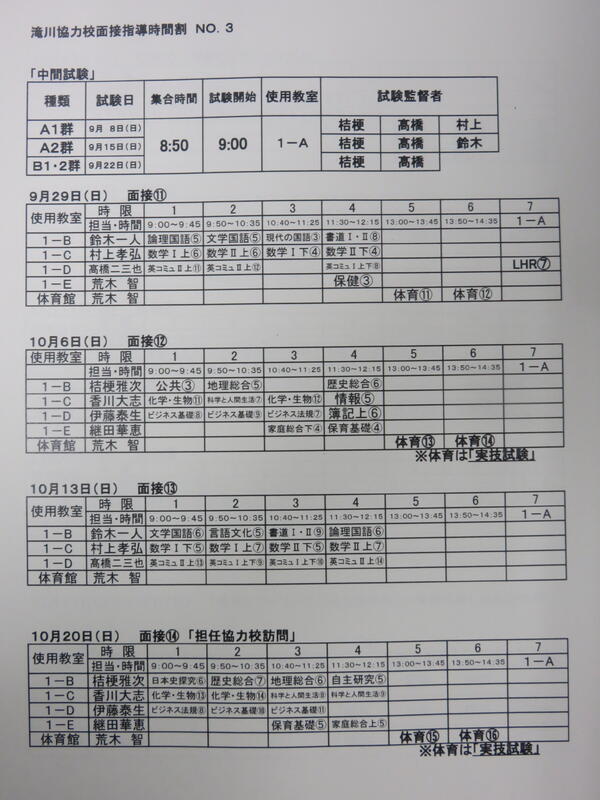 滝川協力校面接指導時間割 NO.3
「中間試験」
種類 試験日 集合時間 試験開始 使用教室 試験監督者
A1群 9月 8日(日) 8:50 9:00 1-A 桔梗 高橋 村上
A2群 9月15日(日) 桔梗 高橋 鈴木
B1・2群 9月22日(日) 桔梗 高橋
9月29日(日) 面接⑪
使用教室 時限 1 2 3 4 5 6 7
担当・時間 9:00~9:45 9:50~10:35 10:40~11:25 11:30~12:15 13:00~13:45 13:50~14:35 1-A
1-B 鈴木一人 論理国語⑤ 文学国語⑤ 現代の国語③ 書道Ⅰ・Ⅱ⑧
1-C 村上孝弘 数学Ⅰ上⑥ 数学Ⅱ上⑥ 数学Ⅰ下④ 数学Ⅱ下④
1-D 髙橋二三也 英コミュⅡ上⑪ 英コミュⅡ上⑫ 英コミュⅠ上下⑧ LHR⑦
1-E 荒木 智 保健③
体育館 荒木 智 体育⑪ 体育⑫
10月6日(日) 面接⑫
使用教室 時限 1 2 3 4 5 6 7
担当・時間 9:00~9:45 9:50~10:35 10:40~11:25 11:30~12:15 13:00~13:45 13:50~14:35 1-A
1-B 桔梗雅次 公共③ 地理総合⑤ 歴史総合⑥
1-C 香川大志 化学・生物⑪ 科学と人間生活⑦ 化学・生物⑫ 情報⑤
1-D 伊藤泰生 ビジネス基礎⑧ ビジネス基礎⑨ ビジネス法規⑦ 簿記上⑥
1-E 継田華恵 家庭総合下④ 保育基礎④
体育館 荒木 智 体育⑬ 体育⑭
※体育は「実技試験」
10月13日(日) 面接⑬
使用教室 時限 1 2 3 4 5 6 7
担当・時間 9:00~9:45 9:50~10:35 10:40~11:25 11:30~12:15 13:00~13:45 13:50~14:35 1-A
1-B 鈴木一人 文学国語⑥ 言語文化⑤ 書道Ⅰ・Ⅱ⑨ 論理国語⑥
1-C 村上孝弘 数学Ⅰ下⑤ 数学Ⅰ上⑦ 数学Ⅱ下⑤ 数学Ⅱ上⑦
1-D 髙橋二三也 英コミュⅡ上⑬ 英コミュⅠ上下⑨ 英コミュⅠ上下⑩ 英コミュⅡ上⑭
体育館 荒木 智
10月20日(日) 面接⑭ 「担任協力校訪問」
使用教室 時限 1 2 3 4 5 6 7
担当・時間 9:00~9:45 9:50~10:35 10:40~11:25 11:30~12:15 13:00~13:45 13:50~14:35 1-A
1-B 桔梗雅次 日本史探究⑥ 歴史総合⑦ 地理総合⑥ 自主研究⑤
1-C 香川大志 化学・生物⑬ 化学・生物⑭ 科学と人間生活⑧ 科学と人間生活⑨
1-D 伊藤泰生 ビジネス法規⑧ ビジネス基礎⑩ ビジネス基礎⑪
1-E 継田華恵 保育基礎⑤ 家庭総合上⑤
体育館 荒木 智 体育⑮ 体育⑯
※体育は「実技試験」